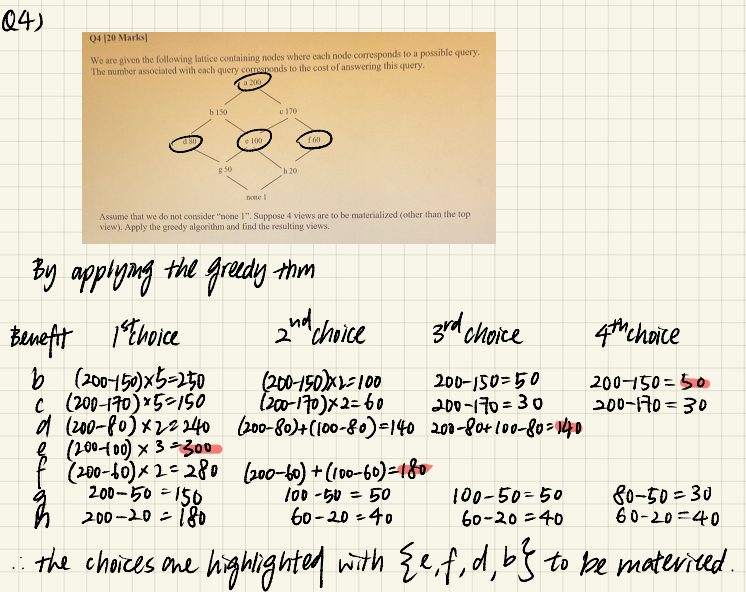 Q4)
Q4 [20 Marks]
We are given the following lattice containing nodes where each node corresponds to a possible query.
The number associated with each query corresponds to the cost of answering this query.
a 200
b 150 c 170
d 80 e 100 f 60
g 50 h 20
none 1
Assume that we do not consider "none 1". Suppose 4 views are to be materialized (other than the top
view). Apply the greedy algorithm and find the resulting views.
By applying the greedy thm
Benefit 1st choice 2nd choice 3rd choice 4th choice
b (200-150)×5=250 (200-150)×2=100 200-150=50 200-150=50
c (200-170)×5=150 (200-170)×2=60 200-170=30 200-170=30
d (200-80)×2=240 (200-80)+(100-80)=140 200-80+100-80=140
e (200-100)×3=300
f (200-60)×2=280 (200-60)+(100-60)=180
g 200-50=150 100-50=50 100-50=50 80-50=30
h 200-20=180 60-20=40 60-20=40 60-20=40
∴ the choices are highlighted with {e,f,d,b} to be materilized.